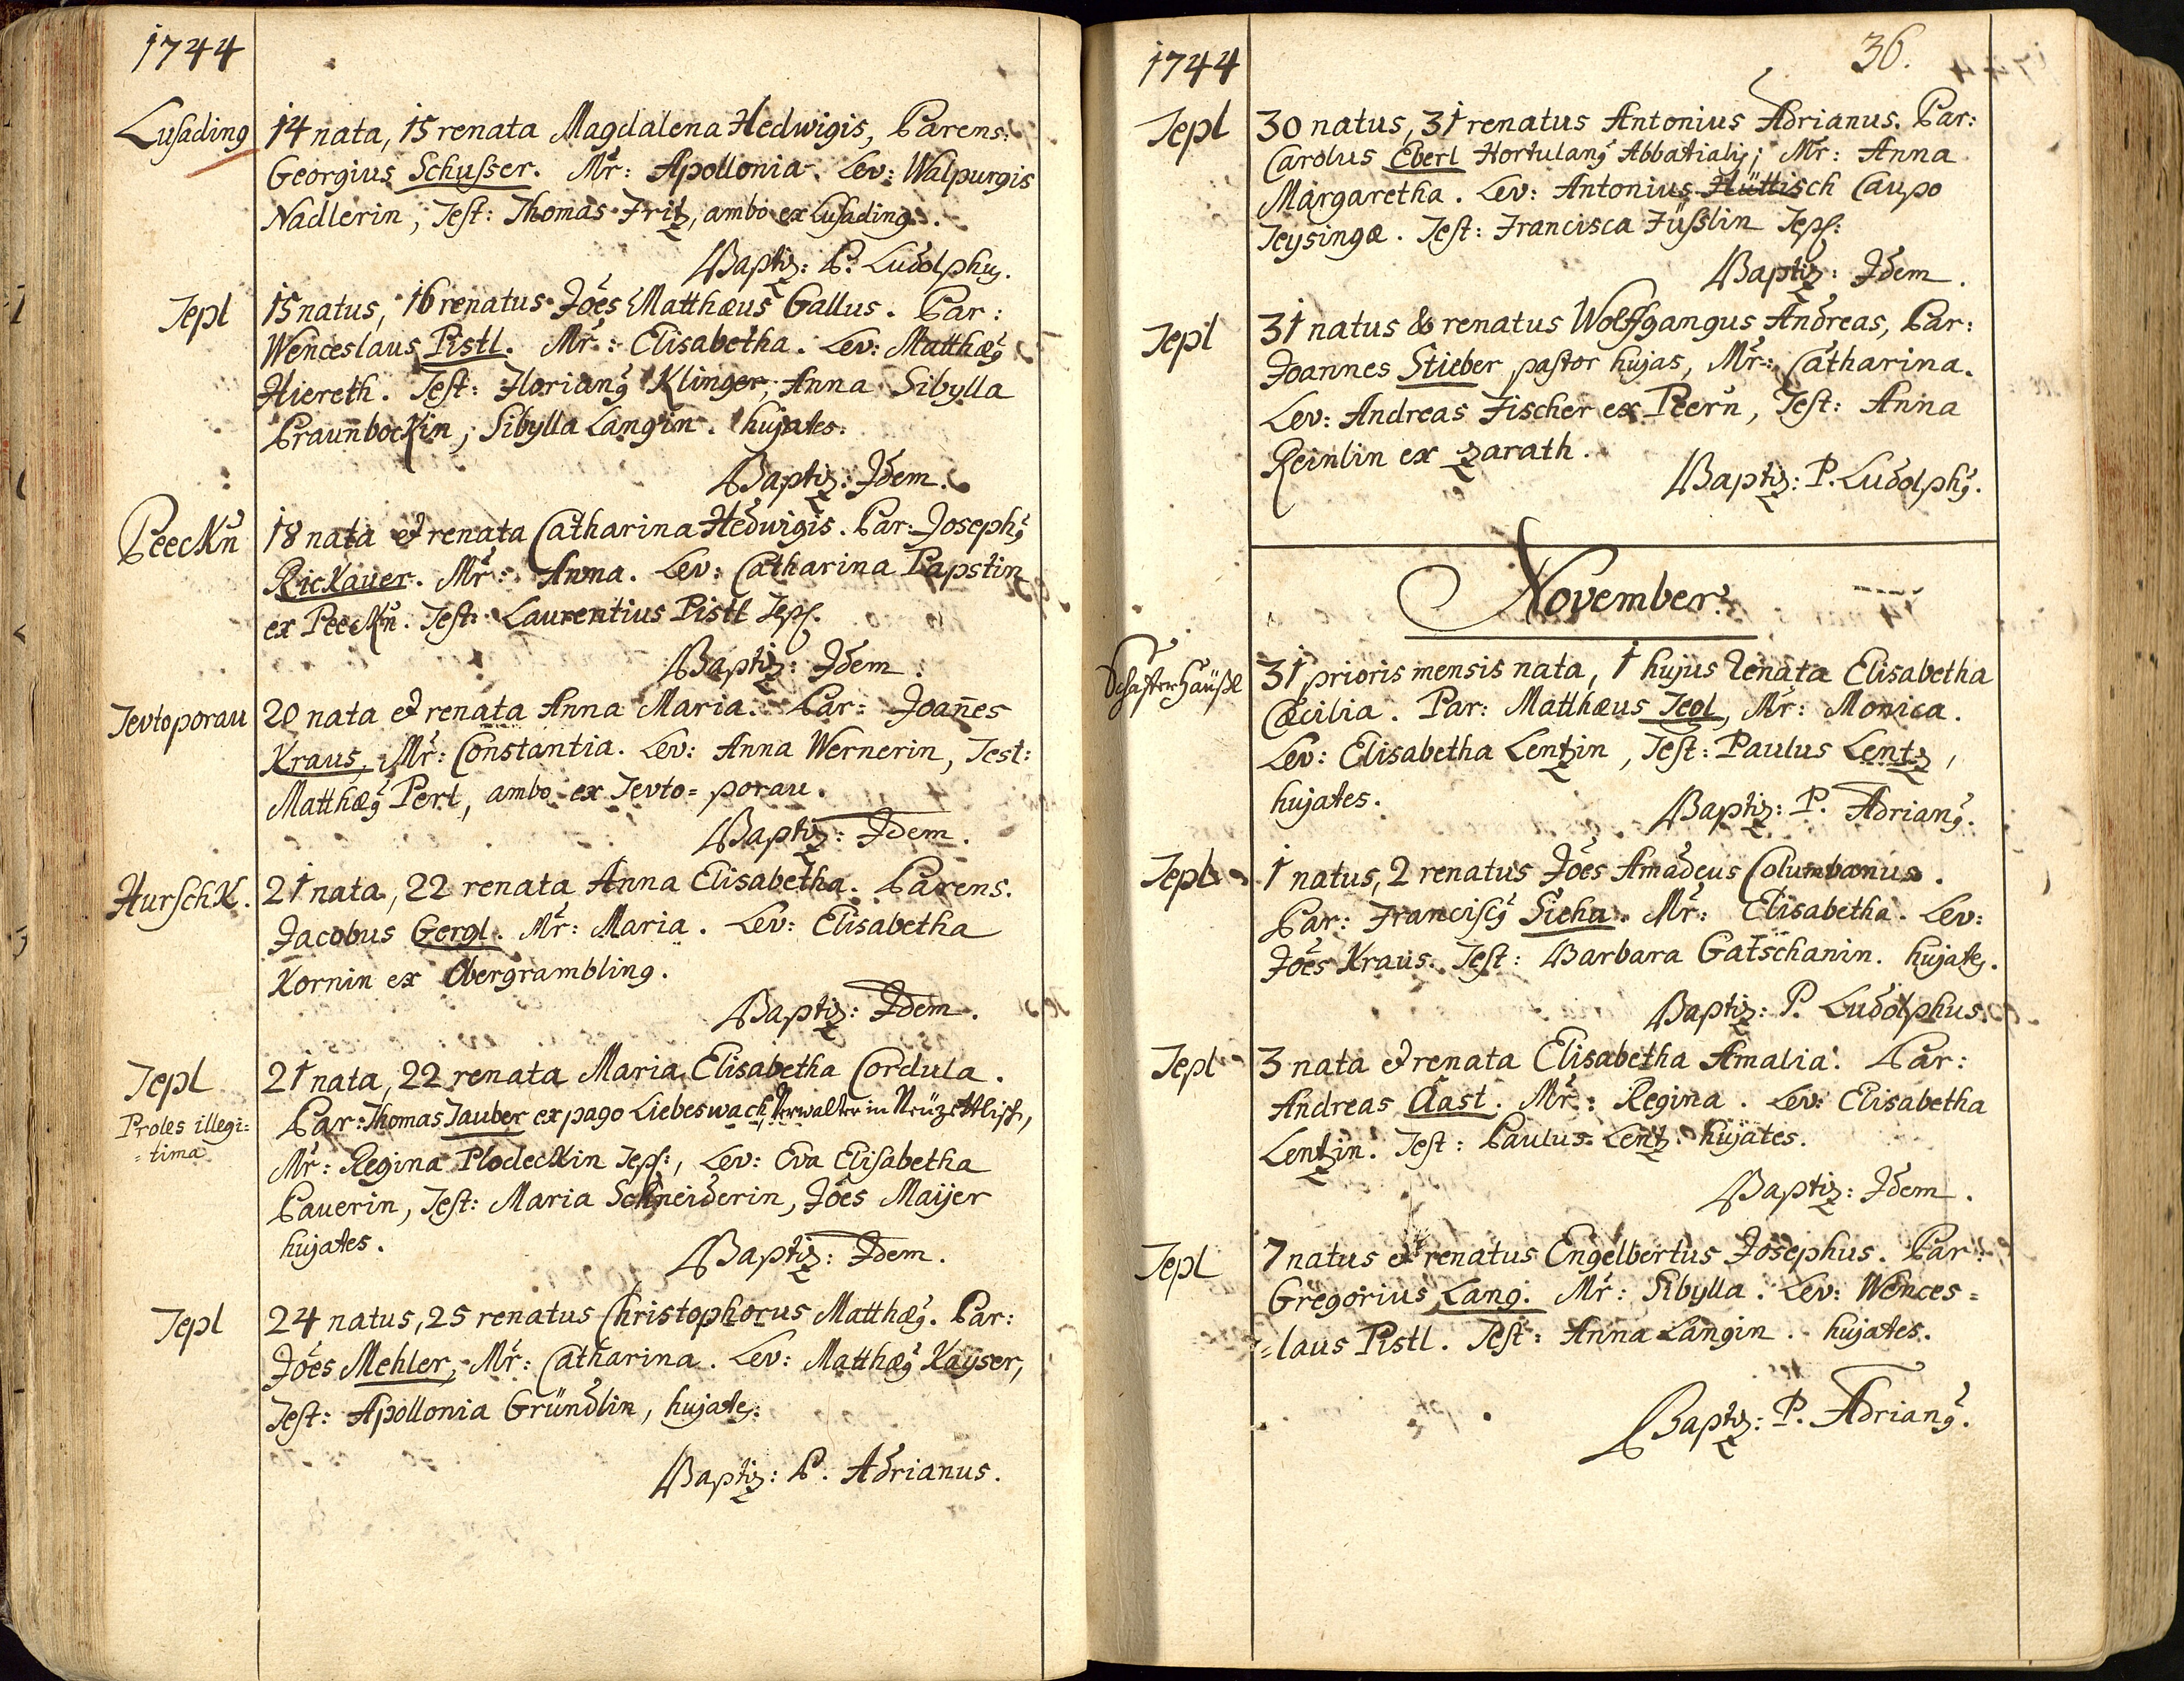 1744
Lusading
14 nata, 15 renata Magdalena Hedwigis, Parens:
Georgius Schusser. Mr: Apollonia. Lev: Walpurgis
Nadlerin, Test: Thomas Fritz, ambo ex Lusading.
Baptiz: P. Ludolphus.
Tepl
15 natus, 16 renatus Joes Matthæus Gallus. Par:
Wenceslaus Pistl. Mr: Elisabetha. Lev: Matthæus
Hiereth. Test: Florianus Klinger, Anna Sibylla
Praunbockin, Sibylla Langin. hujates.
Baptiz: Idem.
Peeckn
18 nata et renata Catharina Hedwigis. Par: Josephus
Rickauer. Mr: Anna. Lev: Catharina Papstin
ex Peeckn. Test: Laurentius Pistl Tepl.
Baptiz: Idem.
Tevtoporau
20 nata et renata Anna Maria. Par: Joannes
Kraus, Mr: Constantia. Lev: Anna Wernerin, Test:
Matthæus Perl, ambo ex Tevto=porau.
Baptiz: Idem.
Hurschk.
21 nata, 22 renata Anna Elisabetha. Parens.
Jacobus Gergl. Mr: Maria. Lev: Elisabetha
Kornin ex Obergrambling.
Baptiz: Idem.
Tepl
Proles illegi=
=tima
21 nata, 22 renata Maria Elisabetha Cordula.
Par: Thomas Tauber ex pago Liebeswach, Verwalter in
Mr: Regina Plodeckin Tepl:, Lev: Eva Elisabetha
Pauerin, Test: Maria Schneiderin, Joes Maijer
hujates.
Baptiz: Idem.
Tepl
24 natus, 25 renatus Christophorus Matthæus. Par:
Joes Mehler, Mr: Catharina. Lev: Matthæus Kayser,
Test: Apollonia Gründlin, hujates.
Baptiz: P. Adrianus.
1744
36.
Tepl
30 natus, 31 renatus Antonius Adrianus. Par:
Carolus Eberl Hortulanus Abbatialis; Mr: Anna
Margaretha. Lev: Antonius Hüttisch Caupo
Teysingæ. Test: Francisca Füsslin Tepl:
Baptiz: Idem.
Tepl
31 natus & renatus Wolffgangus Andreas, Par:
Joannes Stieber pastor hujas, Mr: Catharina.
Lev: Andreas Fischer ex Peern, Test: Anna
Reinlin ex Zarath.
Baptiz: P. Ludolphus.
November.
Schafferhäußl
31 prioris mensis nata, 1 hujus renata Elisabetha
Cæcilia. Par: Matthæus Jegl, Mr: Monica.
Lev: Elisabetha Lentzin, Test: Paulus Lentz,
hujates.
Baptiz: P. Adrianus.
Tepl
1 natus, 2 renatus Joes Amadeus Columbanus.
Par: Franciscus Sicha. Mr: Elisabetha. Lev:
Joes Kraus. Test: Barbara Gatschanin. hujates.
Baptiz: P. Ludolphus.
Tepl
3 nata et renata Elisabetha Amalia. Par:
Andreas Aast. Mr: Regina. Lev: Elisabetha
Lentzin. Test: Paulus Lentz. hujates.
Baptiz: Idem.
Tepl
7 natus et renatus Engelbertus Josephus. Par:
Gregorius Lang. Mr: Sibylla. Lev: Wences=
=laus Pistl. Test: Anna Langin. hujates.
Baptiz: P. Adrianus.